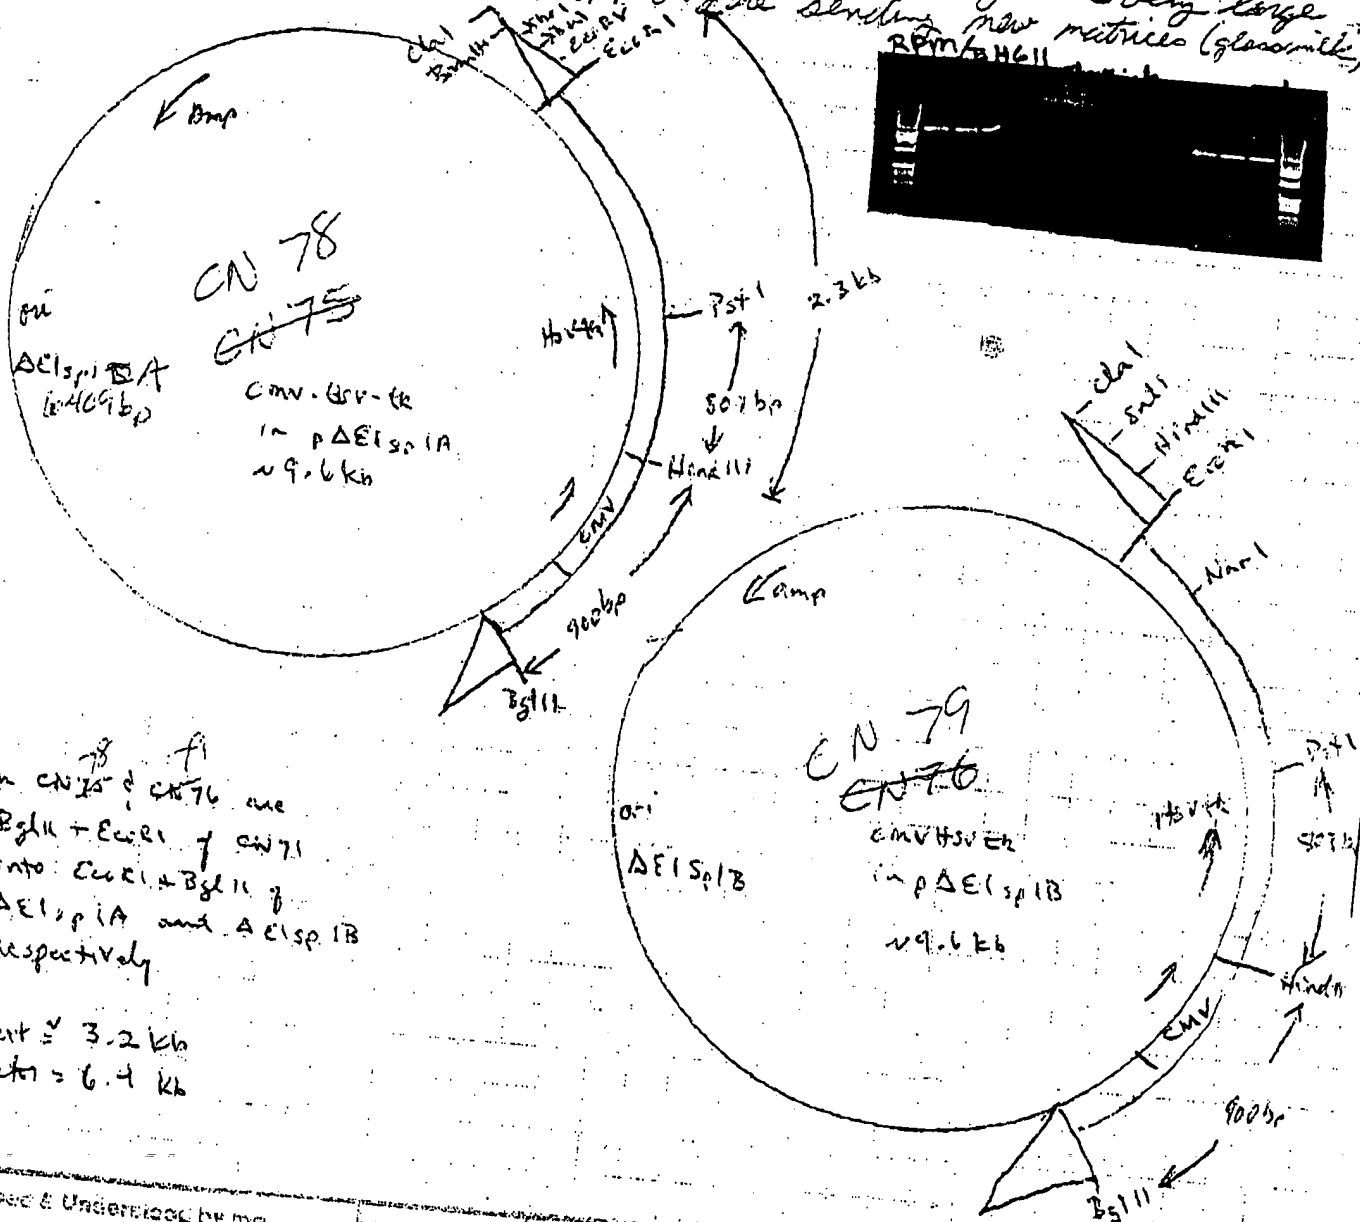 very large
sending new matrices (glassmilk)
RPM/BHG11
Cla1
BamHI
Xho1
EcoRV
EcoR1
Amp
CN 78
CN 75
ori
ΔE1sp1A
6409bp
CMV-HSV-tk
in pΔE1sp1A
~9.6kb
HSVtk
Pst1
2.3 kb
803bp
Hind III
CMV
900bp
Bgl II
Cla1
Sal1
Hind III
EcoR1
Nar1
amp
CN 79
CN 76
CMV HSV tk
in pΔE1sp1B
~9.6 kb
ori
ΔE1Sp1B
HSVtk
Pst1
803b
Hind II
CMV
900bp
Bgl II
78
CN75 & CN76 are
Bgl II + EcoR1 of CN71
into EcoR1 + Bgl II of
ΔE1sp1A and ΔE1sp1B
respectively
3.2 kb
= 6.4 kb
& Understood by me